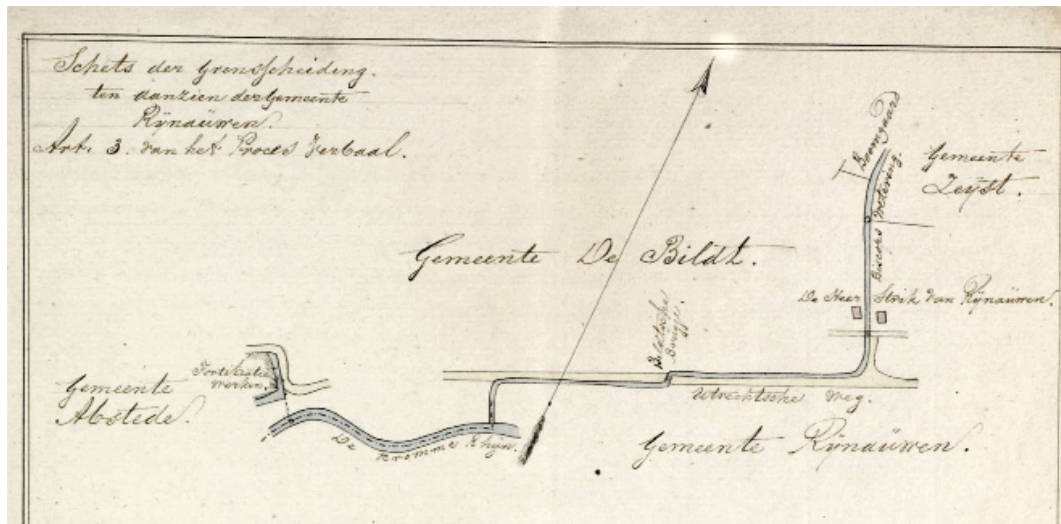 Schets der Grensscheiding.
ten aanzien der Gemeente
Rÿnaüwen.
Art. 3. van het Proces Verbaal.
Boomgaard
Gemeente
Zeÿst.
Biscops Wetering.
Gemeente De Bildt.
De Heer Strik van Rÿnaüwen.
Bildtsche
Brugje
Fortificatie
Werken.
Gemeente
Abstede.
Utrechtsche Weg.
De Kromme Rhÿn.
Gemeente Rÿnaüwen.